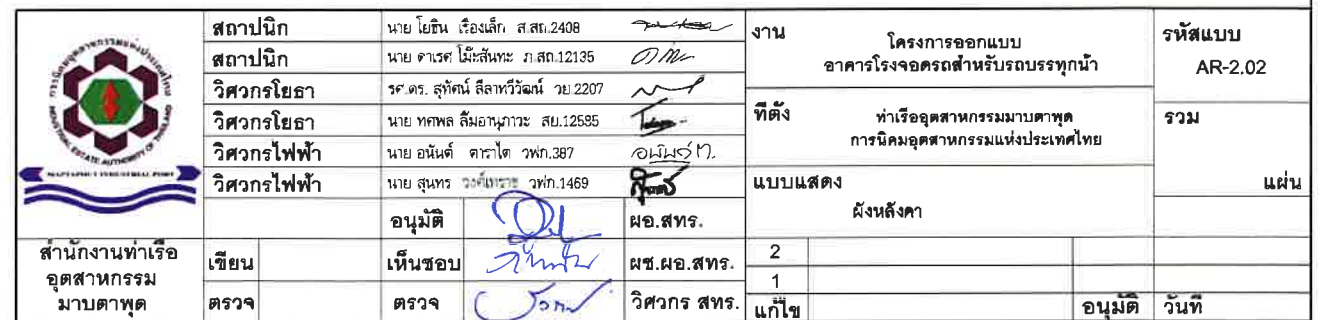 การนิคมอุตสาหกรรมแห่งประเทศไทย
INDUSTRIAL ESTATE AUTHORITY OF THAILAND
MAPTAPHUT INDUSTRIAL PORT
สำนักงานท่าเรือ
อุตสาหกรรม
มาบตาพุด
สถาปนิก นาย โยธิน เรืองเล็ก ส.สถ.2408
สถาปนิก นาย ดาเรศ โม๊ะสันทะ ภ.สถ.12135
วิศวกรโยธา รศ.ดร. สุทัศน์ ลีลาทวีวัฒน์ วย.2207
วิศวกรโยธา นาย ทศพล ลิ้มอานุภาวะ สย.12585
วิศวกรไฟฟ้า นาย อนันต์ ดาราไต วฟก.387
วิศวกรไฟฟ้า นาย สุนทร วงศ์เทราช วฟก.1469
อนุมัติ ผอ.สทร.
เขียน เห็นชอบ ผช.ผอ.สทร.
ตรวจ ตรวจ วิศวกร สทร.
งาน โครงการออกแบบ
อาคารโรงจอดรถสำหรับรถบรรทุกน้ำ
ที่ตั้ง ท่าเรืออุตสาหกรรมมาบตาพุด
การนิคมอุตสาหกรรมแห่งประเทศไทย
แบบแสดง
ผังหลังคา
2
1
แก้ไข อนุมัติ วันที่
รหัสแบบ
AR-2.02
รวม
แผ่น